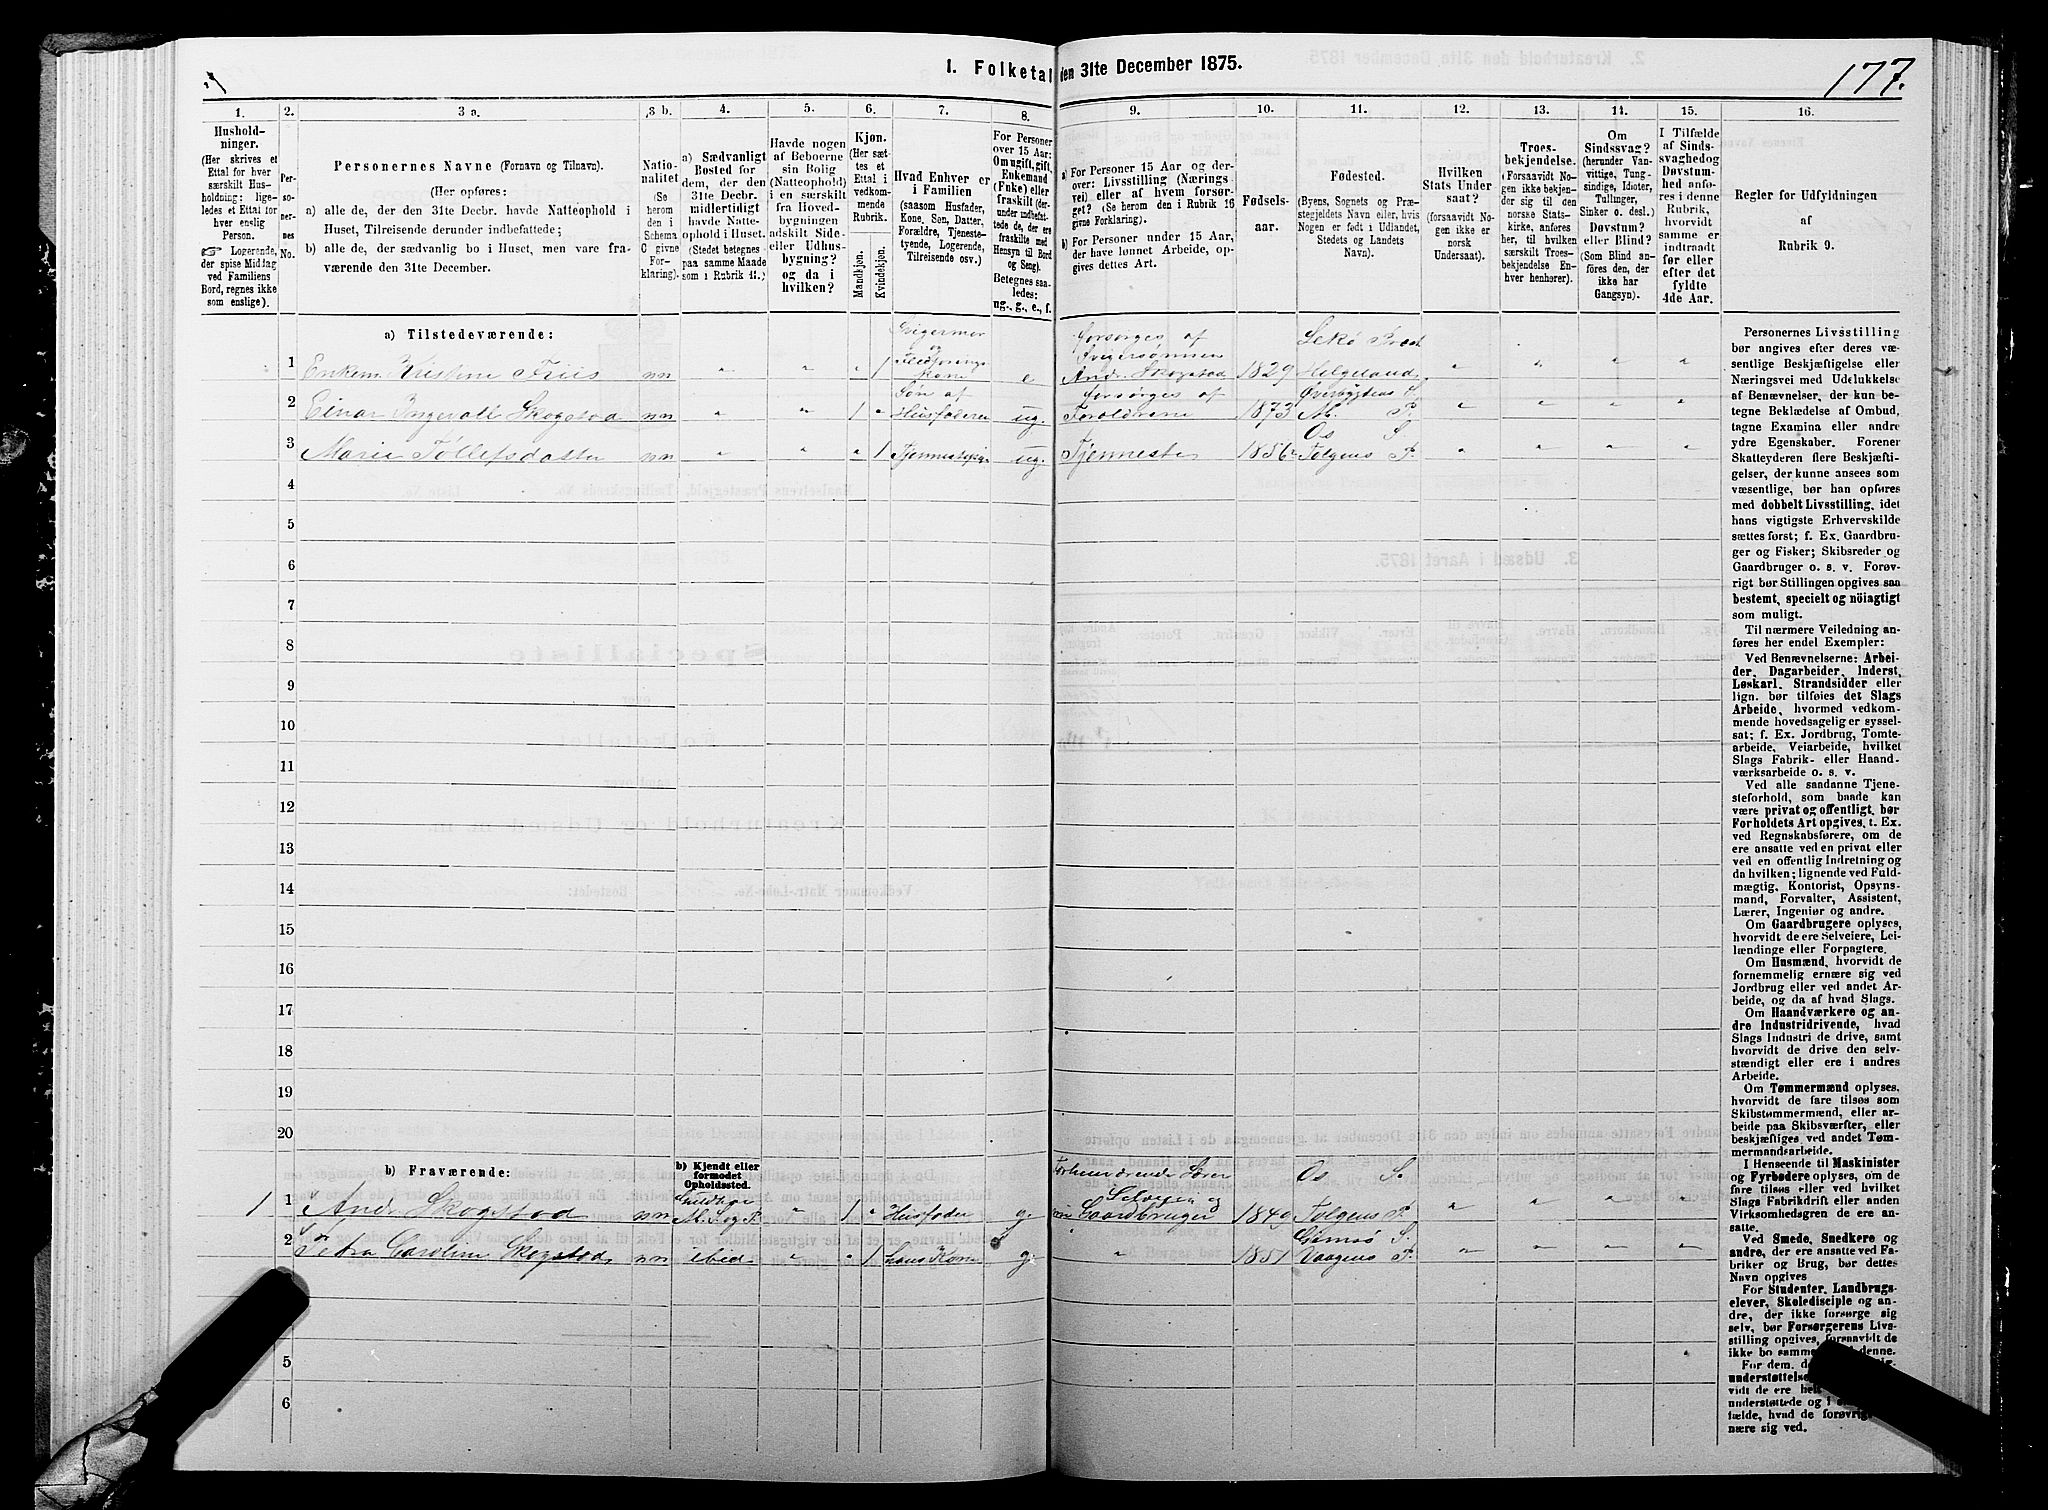 1. Folketal den 31te December 1875.
177.
1.
Hushold-
ninger.
(Her skrives et
Ettal for hver
særskilt Hus-
holdning; lige-
ledes et Ettal for
hver enslig
Person.
Logerende,
der spise Middag
ved Familiens
Bord, regnes ikke
som enslige).
2.
Per-
so-
ner-
nes
No.
3 a.
Personernes Navne (Fornavn og Tilnavn).
(Her opføres:
a) alle de, der den 31te Decbr. havde Natteophold i
Huset, Tilreisende derunder indbefattede;
b) alle de, der sædvanlig bo i Huset, men vare fra-
værende den 31te December.
3 b.
Natio-
nalitet
(Se
herom
den i
Schema
C givne
For-
klaring).
4.
a) Sædvanligt
Bosted for
dem, der den
31te Decbr.
midlertidigt
havde Natte-
ophold i Huset.
(Stedet betegnes
paa samme Maade
som i Rubrik 11.)
5.
Havde nogen
af Beboerne
sin Bolig
(Natteophold)
i en særskilt
fra Hoved-
bygningen
adskilt Side-
eller Udhus-
bygning?
og da i
hvilken?
6.
Kjøn.
(Her sæt-
tes et
Ettal i
vedkom-
mende
Rubrik.
Mandkjøn.
Kvindekjøn.
7.
Hvad Enhver er
i Familien
(saasom Husfader,
Kone, Søn, Datter,
Forældre, Tjeneste-
tyende, Logerende,
Tilreisende osv.)
8.
For Personer
over 15 Aar:
Om ugift, gift,
Enkemand
(Enke) eller
fraskilt (der-
under indbefat-
tede de, der ere
fraskilte med
Hensyn til Bord
og Seng).
Betegnes saa-
ledes:
ug., g., e., f.
9.
a) For Personer 15 Aar og der-
over: Livsstilling (Nærings-
vei) eller af hvem forsør-
get? (Se herom den i Rubrik 16
givne Forklaring).
b) For Personer under 15 Aar,
der have lønnet Arbeide, op-
gives dettes Art.
10.
Fødsels-
aar.
11.
Fødested.
(Byens, Sognets og Præ-
stegjeldets Navn eller, hvis
Nogen er født i Udlandet,
Stedets og Landets
Navn).
12.
Hvilken
Stats Under-
saat?
(forsaavidt No-
gen ikke er
norsk
Undersaat).
13.
Troes-
bekjendelse.
(Forsaavidt No-
gen ikke bekjen-
der sig til den
norske Stats-
kirke, anføres
her, til hvilken
særskilt Troes-
bekjendelse En-
hver henhører).
14.
Om
Sindssvag?
(herunder Van-
vittige, Tung-
sindige, Idioter,
Tullinger,
Sinker o. desl.)
Døvstum?
eller Blind?
(Som Blind an-
føres den, der
ikke har
Gangsyn).
15.
I Tilfælde
af Sinds-
svaghed og
Døvstum-
hed anfø-
res i denne
Rubrik,
hvorvidt
samme er
indtraadt
før eller
efter det
fyldte
4de Aar.
16.
Regler for Udfyldningen
af
Rubrik 9.
a) Tilstedeværende:
1 Enkem Kristine Friis nn " " " 1 Svigermor og e Forsørges af Svigersønnen And. Skogstad 1829 Helgeland " " " "
2 Einar Ingevall Skogstad nn " " 1 " Søn af Husfaderen ug. Forsørges af Forældrene 1873 Øverbygdens S. M. P. " " " "
3 Marie Tollefsdatter nn " " " 1 Tjenestepige ug. Tjenneste 1856 Os S. Tolgens P. " " " "
4
5
6
7
8
9
10
11
12
13
14
15
16
17
18
19
20
b) Fraværende:
b) Kjendt eller
formodet
Opholdssted.
1 1 And. Skogstad nn M. S. og P. " 1 " Husfader g. Forhenværende Lærer Selveier og Gaardbruger 1849 Os S. Tolgens P. " " " "
2 Petra Caroline Skogstad nn ibid " " 1 hans Kone g. " 1851 Gimsø S. Vaagens P. " " " "
5
6
Personernes Livsstilling
bør angives efter deres væ-
sentlige Beskjæftigelse eller
Næringsvei med Udelukkelse
af Benævnelser, der kun be-
tegne Beklædelse af Ombud,
tagne Examina eller andre
ydre Egenskaber. Forener
Skatteyderen flere Beskjæfti-
gelser, der kunne ansees som
væsentlige, bør han opføres
med dobbelt Livsstilling, idet
hans vigtigste Erhvervskilde
sættes først; f. Ex. Gaardbru-
ger og Fisker; Skibsreder og
Gaardbruger o. s. v. Forøv-
rigt bør Stillingen opgives saa
bestemt, specielt og nöiagtigt
som muligt.
Til nærmere Veiledning an-
føres her endel Exempler:
Ved Benævnelserne: Arbei-
der, Dagarbeider, Inderst,
Løskarl, Strandsidder eller
lign. bør tilføies det Slags
Arbeide, hvormed vedkom-
mende hovedsagelig er syssel-
sat; f. Ex. Jordbrug, Tomte-
arbeide, Veiarbeide, hvilket
Slags Fabrik- eller Haand-
værksarbeide o. s. v.
Ved alle saadanne Tjene-
steforhold, som baade kan
være privat og offentligt, bør
Forholdets Art opgives, t. Ex.
ved Regnskabsførere, om de
ere ansatte ved en privat eller
ved en offentlig Indretning og
da hvilken; lignende ved Fuld-
mægtig, Kontorist, Opsyns-
mand, Forvalter, Assistent,
Lærer, Ingeniør og andre.
Om Gaardbrugere oplyses,
hvorvidt de ere Selveiere, Lei-
lændinge eller Forpagtere.
Om Husmænd, hvorvidt de
fornemmelig ernære sig ved
Jordbrug eller ved andet Ar-
beide, og da af hvad Slags.
Om Haandværkere og an-
dre Industridrivende, hvad
Slags Industri de drive, samt
hvorvidt de drive den selv-
stændigt eller ere i andres
Arbeide.
Om Tømmermænd oplyses,
hvorvidt de fare tilsøs som
Skibstømmermænd, eller ar-
beide paa Skibsværfter, eller
beskjæftiges ved andet Tøm-
mermandsarbeide.
I Henseende til Maskinister
og Fyrbødere oplyses, om de
fare tilsøs eller ved hvilket
Slags Fabrikdrift eller anden
Virksomhedsgren de ere an-
satte.
Ved Smede, Snedkere og
andre, der ere ansatte ved Fa-
briker og Brug, bør dettes
Navn opgives
For Studenter, Landbrugs-
elever, Skoledisciple og an-
dre, der ikke forsørge sig
selv, bør Forsørgerens Livs-
stilling opgives, forsaavidt de
ikke bo sammen med denne.
For dem, de
understøttelse
vidt de ere helt
understøttede og i
fælde, hvad de forøvrigt
nære sig ved.